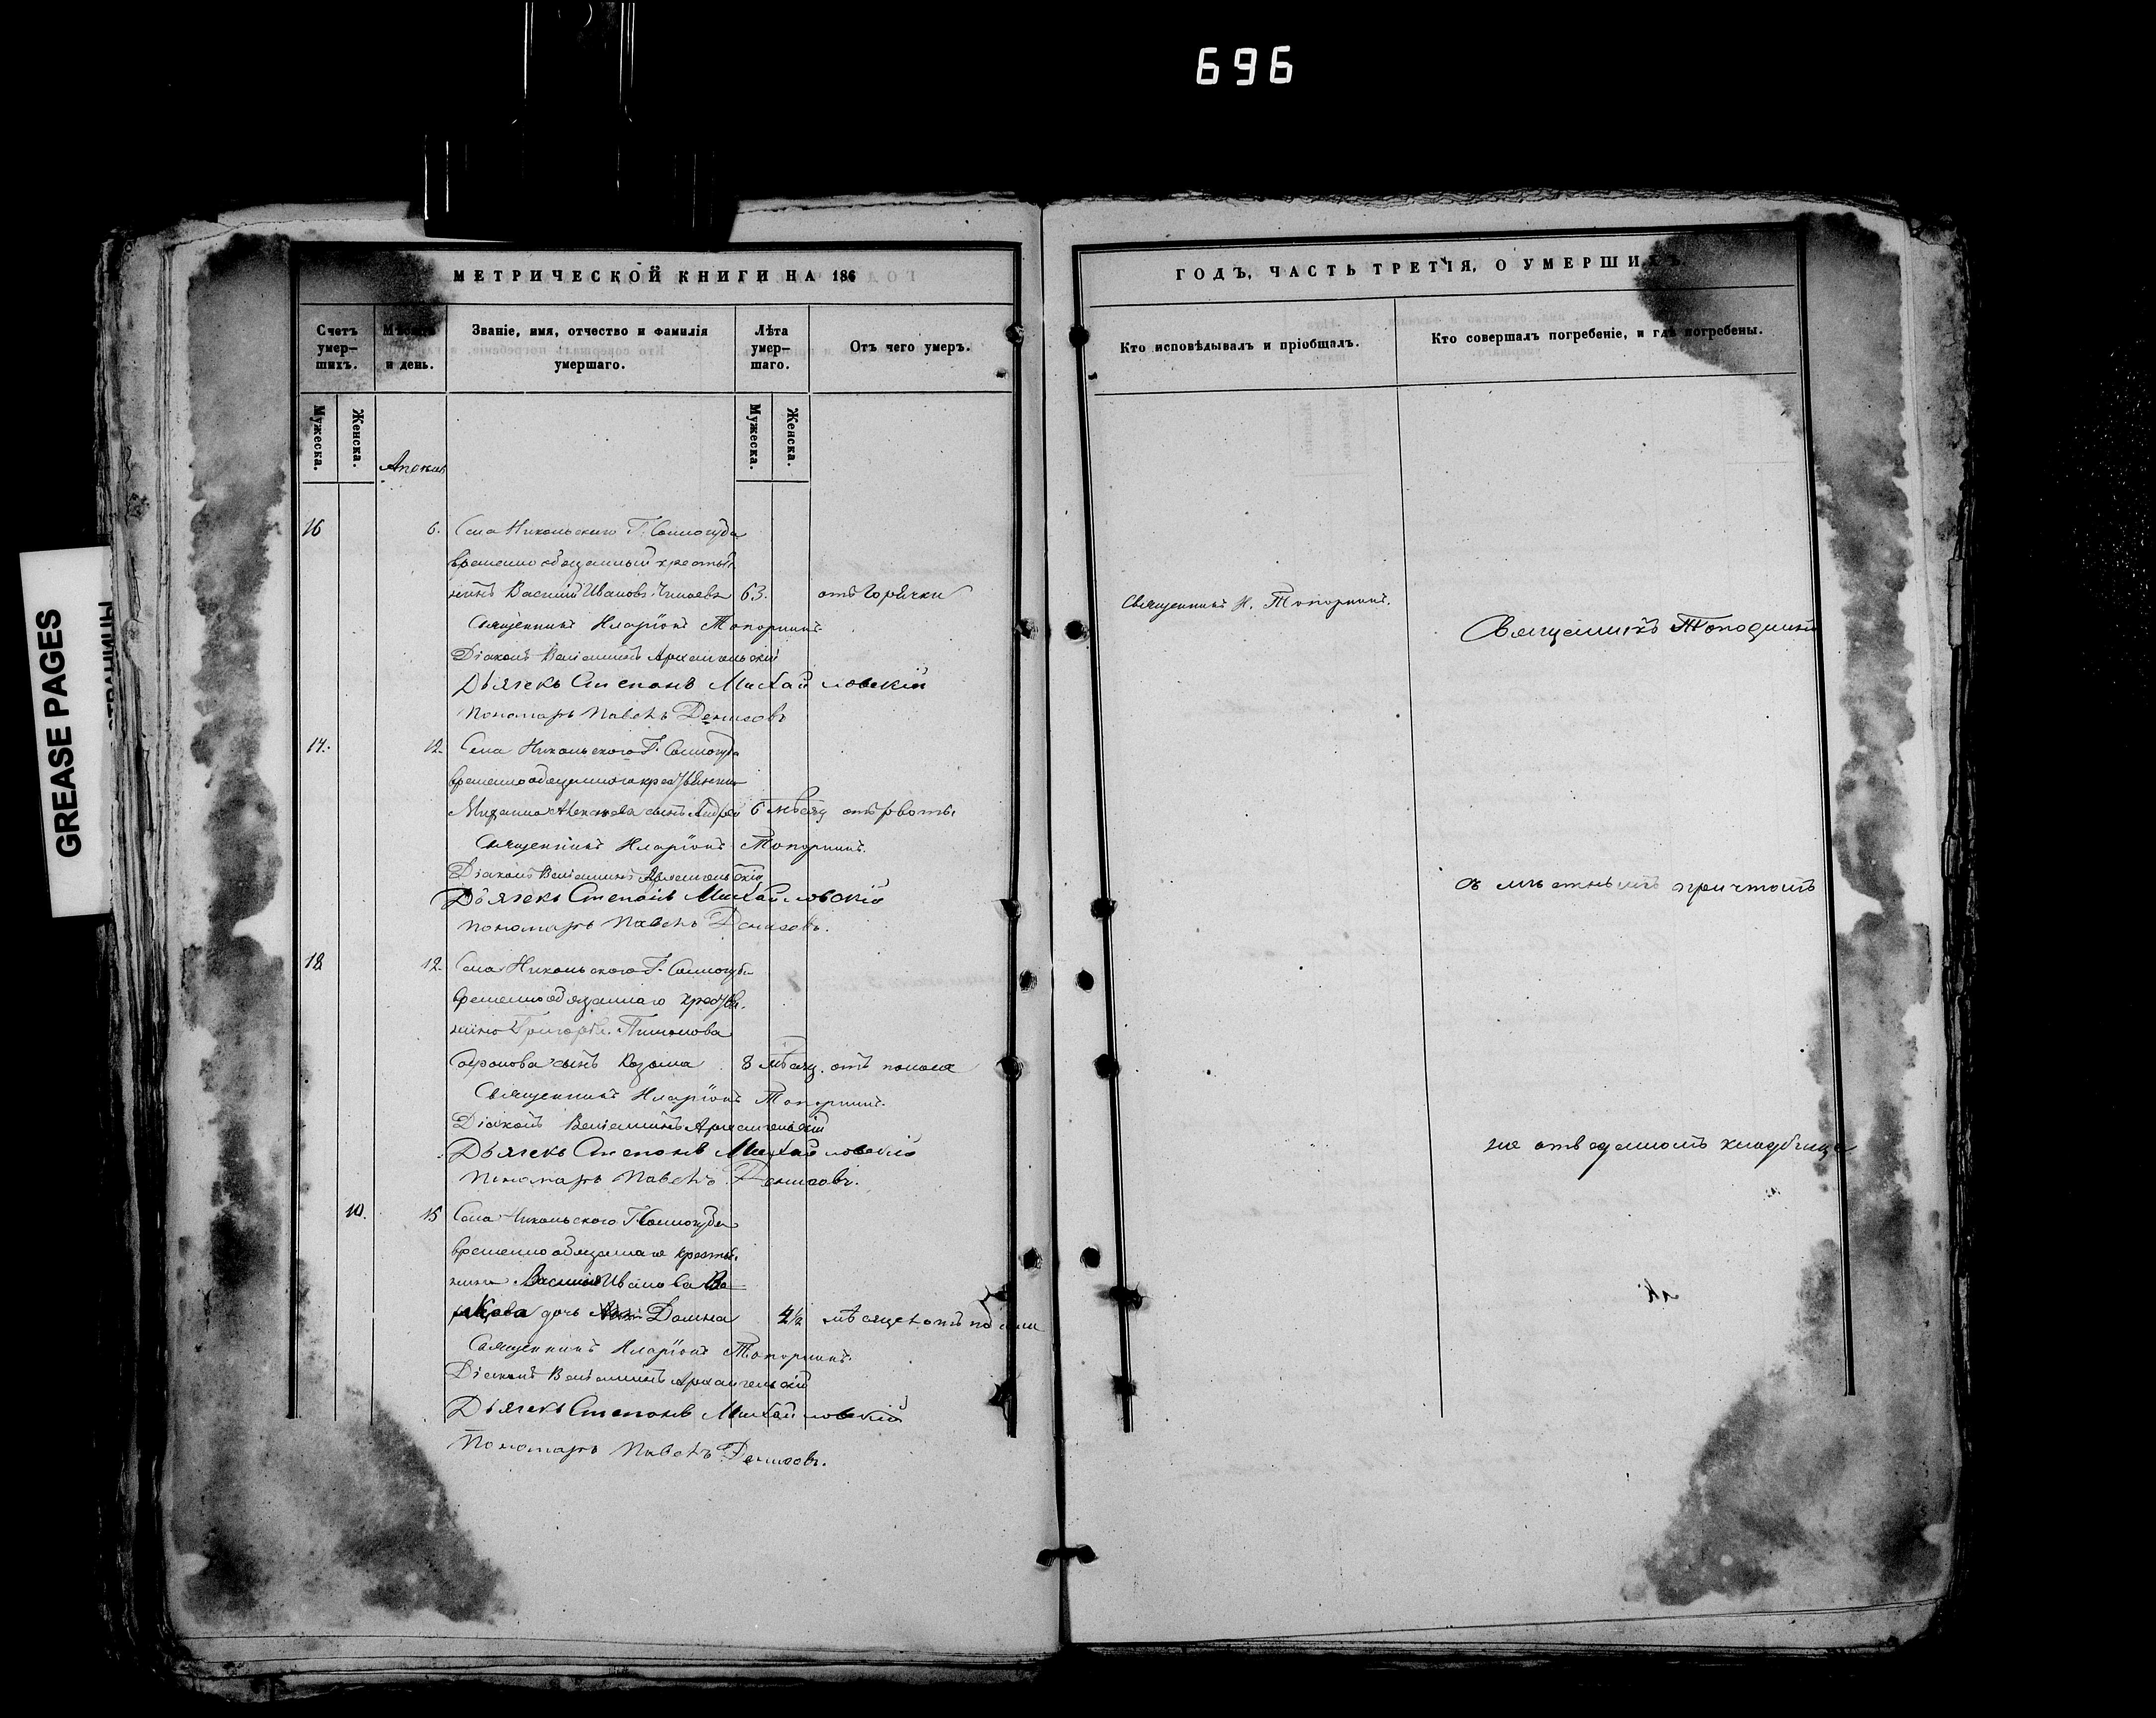 696
GREASE PAGES
СТРАНИЦЫ
МЕТРИЧЕСКОЙ КНИГИ НА 186
Счетъ умер– шихъ.
Мѣсяцъ и день.
Званіе, имя, отчество и фамилія умершаго.
Лѣта умер– шаго.
Отъ чего умеръ.
Мужеска.
Женска.
Мужеска.
Женска.
16 6. Села Никольскаго Г. Солногуба
временно обязанный крестья
нинъ Василій Ивановъ 63. отъ горячки
Священникъ Иларіонъ Топорнинъ.
Діаконъ Веніаминъ Архангельскій
Дьячекъ Степанъ Михайловскій
Пономарь Павелъ Денисовъ
17. 12. Села Никольскаго Г. Солногуба
временнообязаннаго крестьянина
Михаила сынъ Андрей 6 мѣсяц отъ рвоты.
Священникъ Иларіонъ Топорнинъ.
Діаконъ Веніаминъ Архангельскій
Дьячекъ Степанъ Михайловскій
Пономарь Павелъ Денисовъ.
18 12. Села Никольскаго Г. Солногуба
временнообязаннаго крестья.
нина Григорія
сынъ Козьма 8 мѣсяц. отъ поноса
Священникъ Иларіонъ Топорнинъ.
Діаконъ Веніаминъ Архангельскій
Дьячекъ Степанъ Михайловскій
Пономарь Павелъ Денисовъ.
10. 15 Села Никольскаго Г. Солногуба
временнообязаннаго крестья.
нина Василія Иванова
дочь Домна 4½ мѣсяцевъ отъ
Священникъ Иларіонъ Топорнинъ.
Діаконъ Веніаминъ Архангельскій
Дьячекъ Степанъ Михайловскій
Пономарь Павелъ Денисовъ.
ГОДЪ, ЧАСТЬ ТРЕТІЯ, О УМЕРШИХЪ.
Кто исповѣдывалъ и пріобщалъ.
Кто совершалъ погребеніе, и гдѣ погребены.
Священникъ И. Топорнинъ.
Священникъ Топорнинъ
съ мѣстнымъ причтомъ
на отведенномъ кладбище